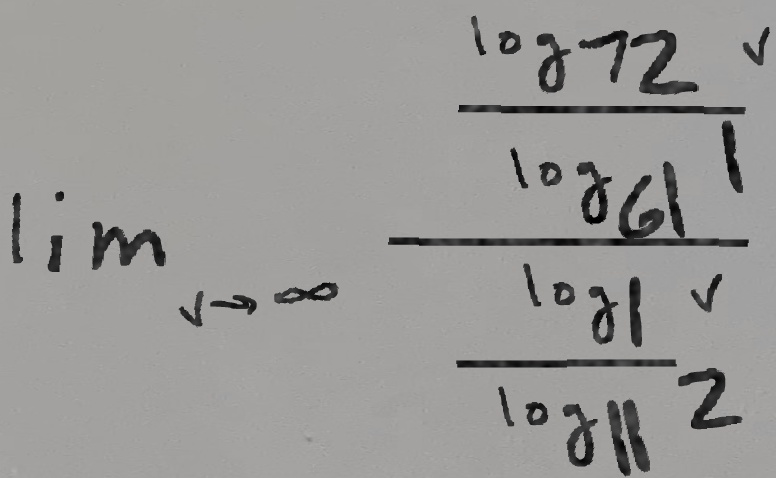 lim_{v→∞} \frac{\frac{\log_{72} v}{\log_{61} 1}}{\frac{\log_{1} v}{\log_{11} 2}}